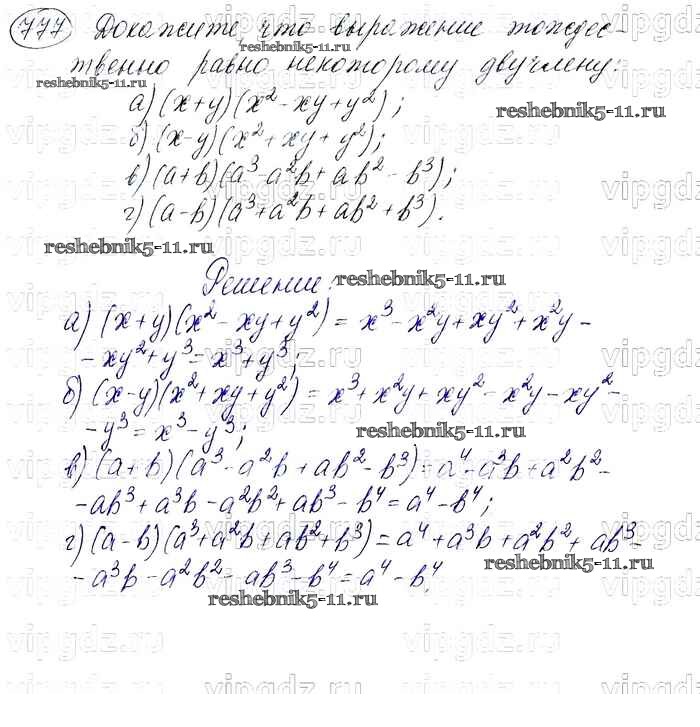 777 Докажите, что выражение тождес-
твенно равно некоторому двучлену:
reshebnik5-11.ru
а) (x+y)(x²-xy+y²);
reshebnik5-11.ru
б) (x-y)(x²+xy+y²);
в) (a+b)(a³-a²b+ab²-b³);
г) (a-b)(a³+a²b+ab²+b³).
reshebnik5-11.ru
Решение:
reshebnik5-11.ru
а) (x+y)(x²-xy+y²) = x³-x²y+xy²+x²y-
-xy²+y³=x³+y³;
б) (x-y)(x²+xy+y²) = x³+x²y+xy²-x²y-xy²-
-y³=x³-y³;
reshebnik5-11.ru
в) (a+b)(a³-a²b+ab²-b³)=a⁴-a³b+a²b²-
-ab³+a³b-a²b²+ab³-b⁴=a⁴-b⁴;
г) (a-b)(a³+a²b+ab²+b³)=a⁴+a³b+a²b²+ab³-
reshebnik5-11.ru
-a³b-a²b²-ab³-b⁴=a⁴-b⁴.
reshebnik5-11.ru
vipgdz.ru